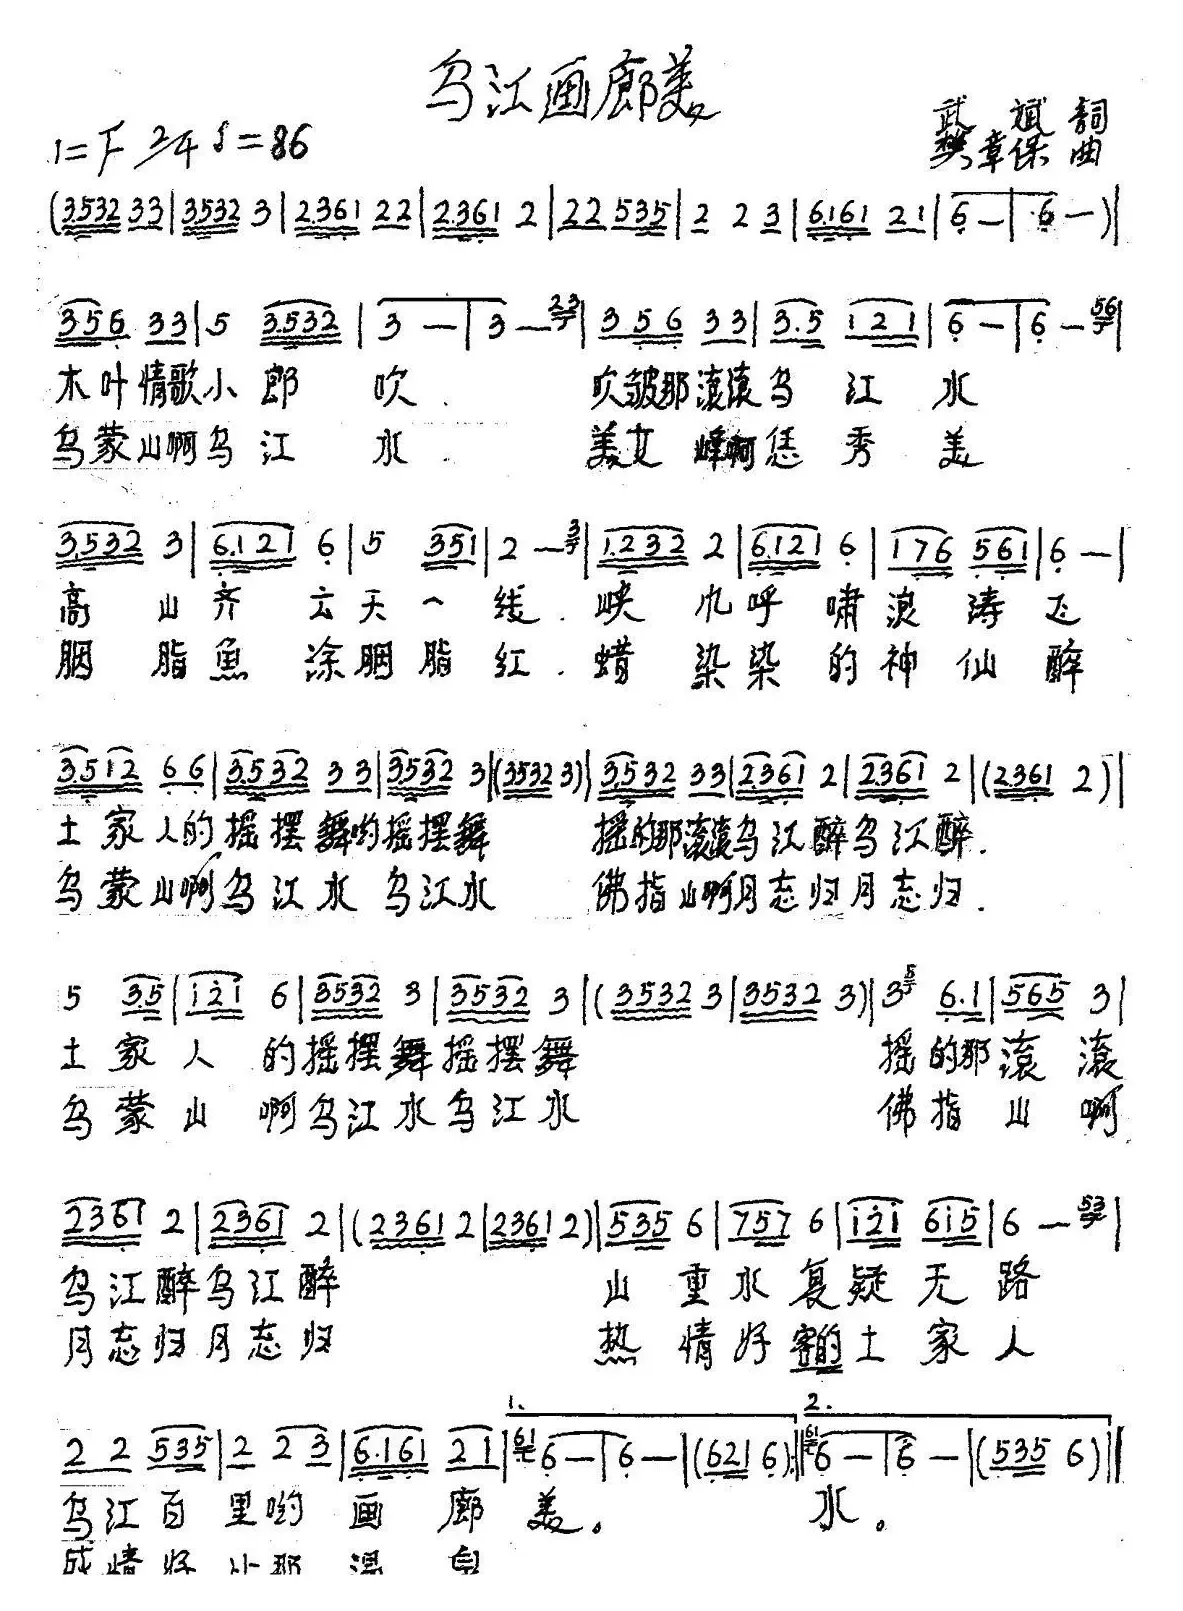 乌江画廊美
武 斌 詞
1=F 2/4 ♩=86
樊章保 曲
(3.532 33|3532 3|2.361 22|2.361 2|22 535|2 2 3|6.161 21|6 —|6 —)|
356 33|5 3.532|3 —|3 — 23|3 56 33|3.5 121|6 —|6 — 56|
木叶情歌小郎 吹. 吹皱那滚滚乌 江 水
乌蒙山啊乌江 水. 美女峰啊恁秀 美
3.532 3|6.121 6|5 351|2 — 3|1.232 2|6.121 6|176 561|6 —|
高 山齐 云天 一 线. 峡 呼 啸浪 涛 飞
胭 脂魚 涂胭 脂 红. 蜡 染染 的神 仙 醉
3.512 66|3.532 33|3532 3|(3532 3)|3532 33|2361 2|2361 2|(2361 2)|
土家人的摇摆舞哟摇摆舞 摇的那滚滚乌江醉乌江醉.
乌蒙山啊乌江水 乌江水 佛指山啊月忘归月忘归.
5 3.5|121 6|3532 3|3532 3|(3532 3|3532 3)|3 5 6.1|565 3|
土 家 人 的摇摆舞摇摆舞 摇的那滚 滚
乌 蒙 山 啊乌江水乌江水 佛指山 啊
2361 2|2361 2|(2361 2|2361 2)|535 6|757 6|121 615|6 — 53|
乌江醉乌江醉 山 重水 复疑 无 路
月忘归月忘归 热 情好 客的土 家 人
1. 2.
2 2 535|2 2 3|6.161 21|61 6 —|6 —|(621 6):|61 6 —|6 —|(535 6)||
乌江百 里哟 画 廊 美。 水。